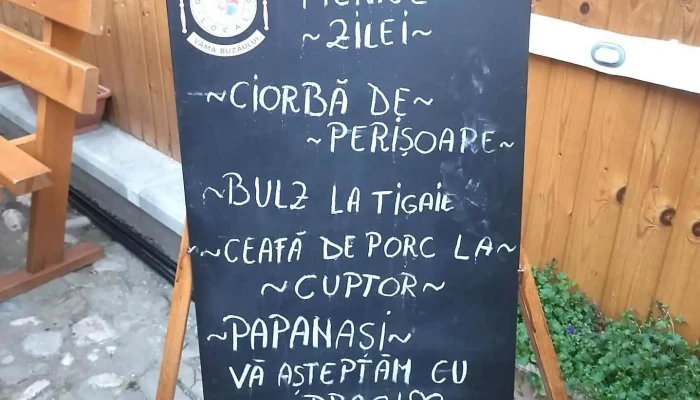 LOCAL
VAMA BUZĂULUI
~ZILEI~
~CIORBĂ DE~
~PERIȘOARE~
~BULZ LA TIGAIE
~CEAFĂ DE PORC LA~
~CUPTOR~
~PAPANAȘI~
VĂ AȘTEPTĂM CU